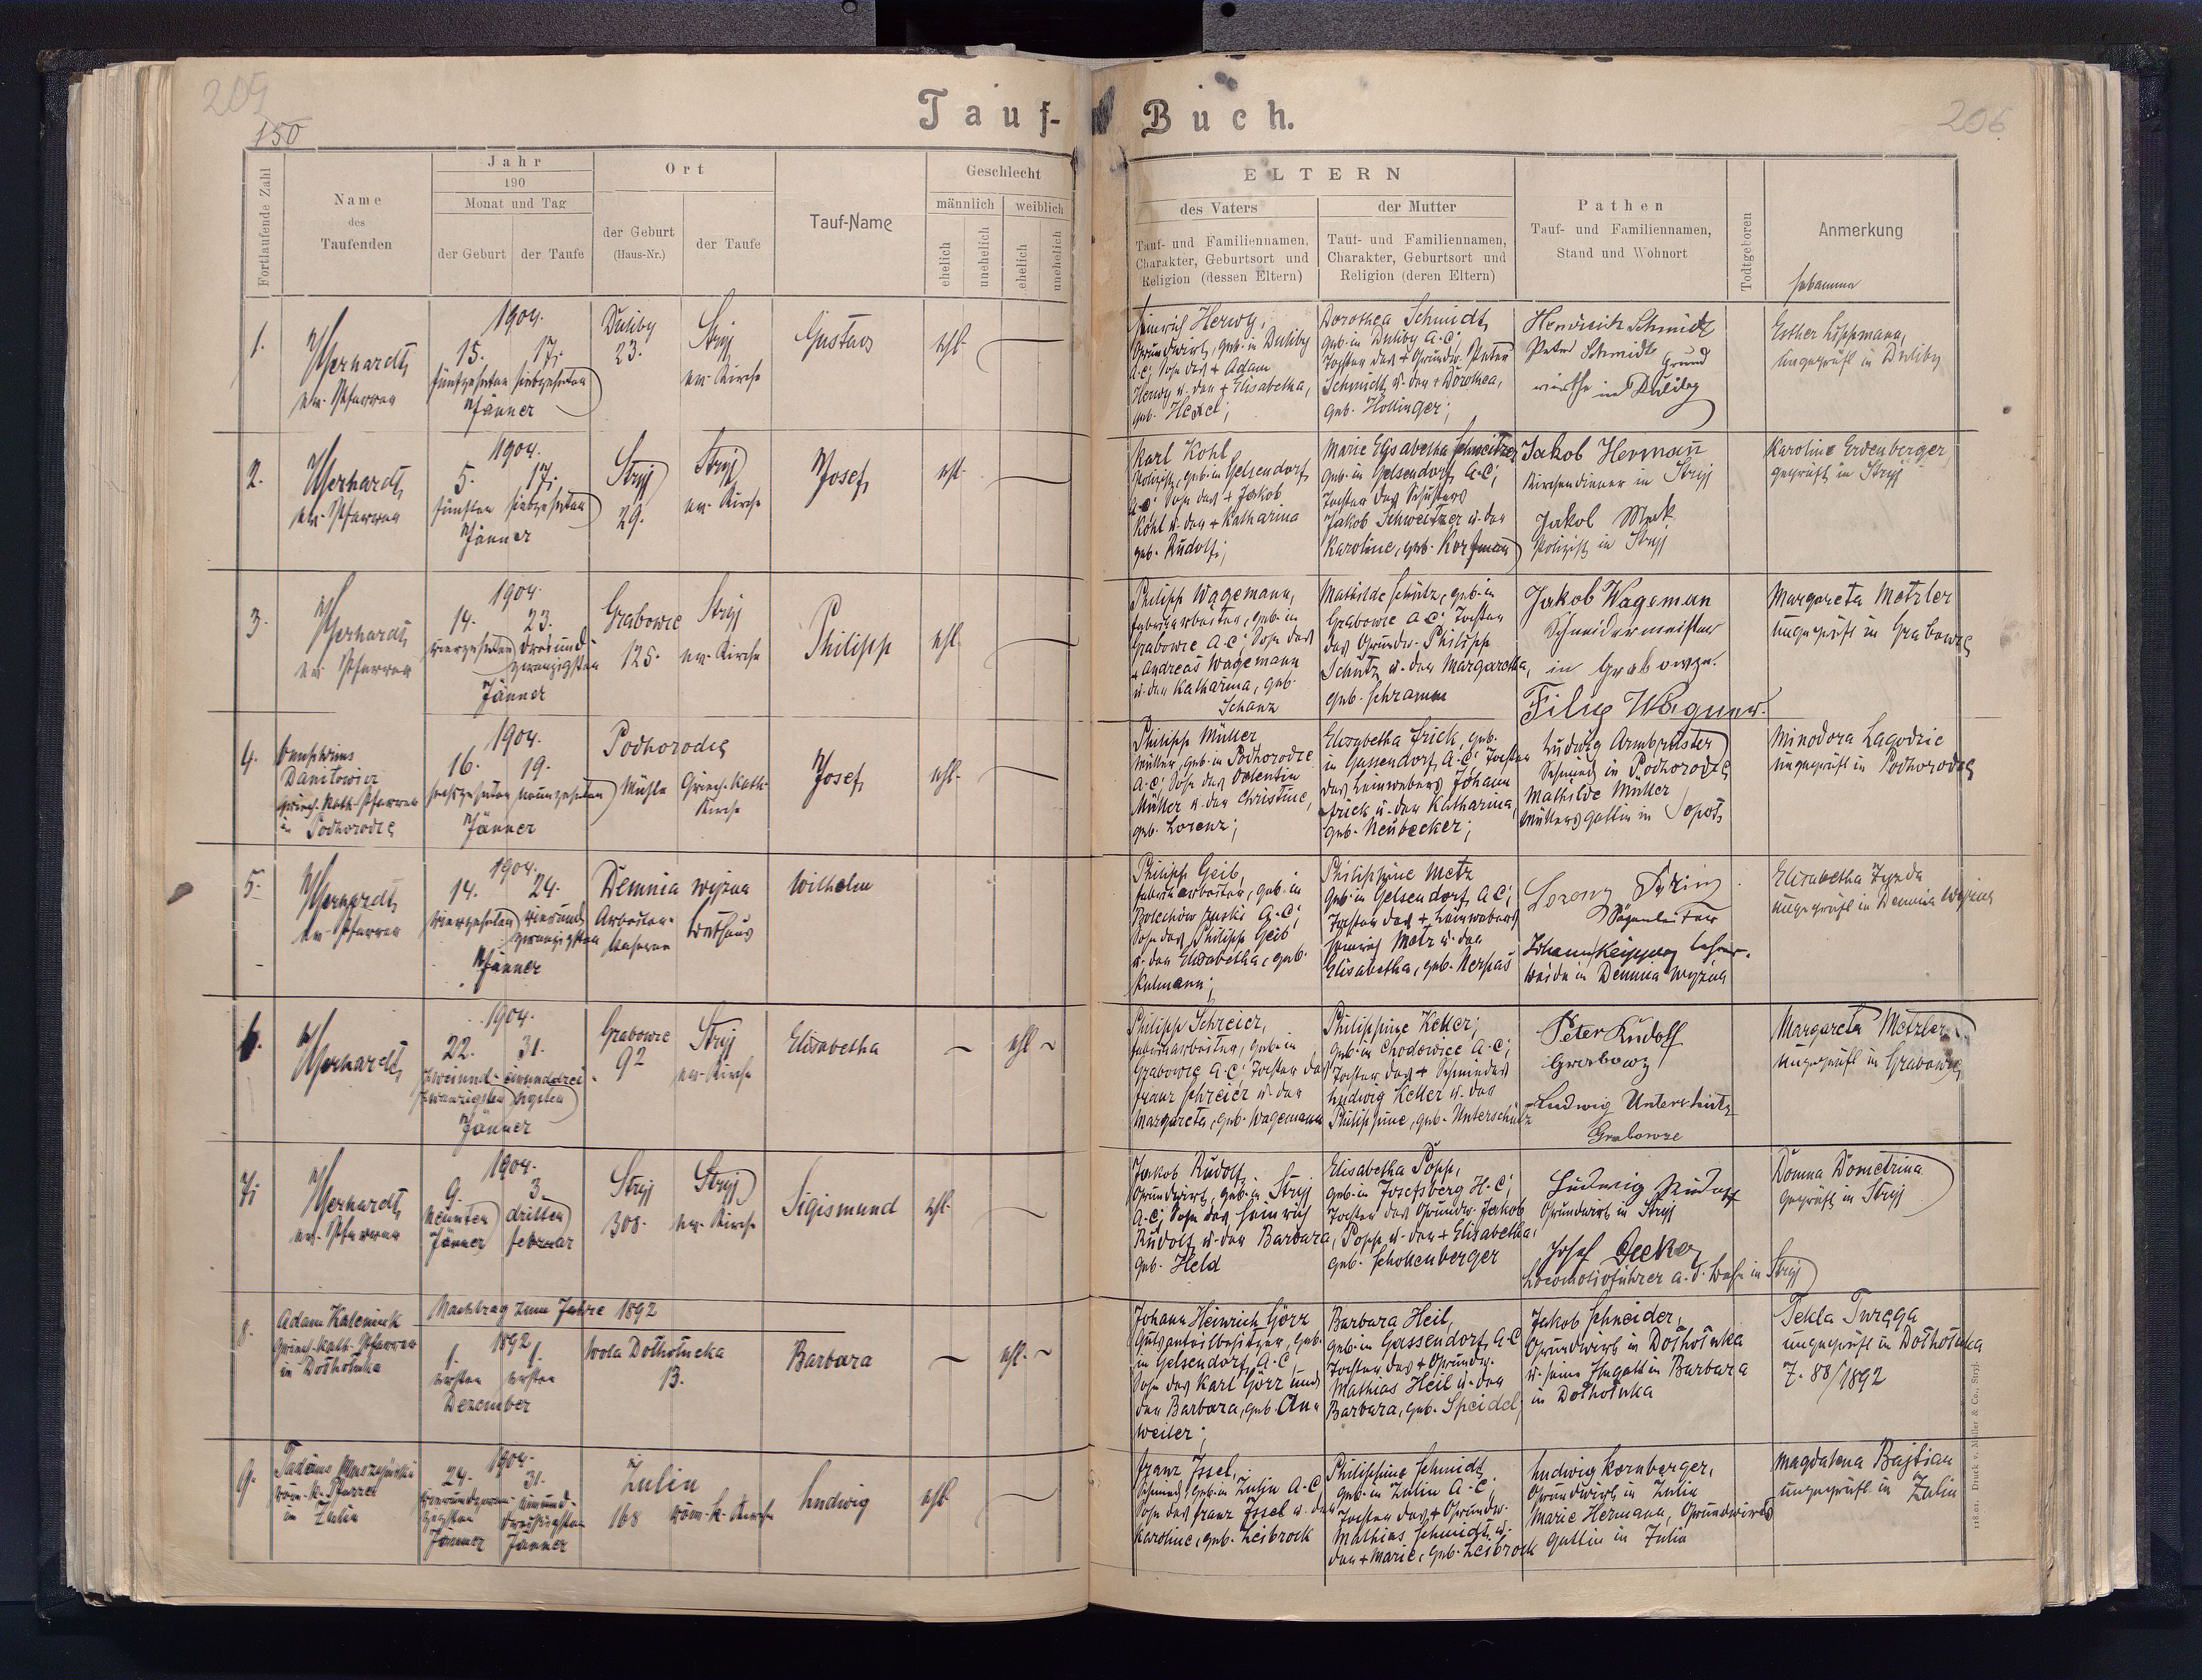 209
150
Tauf-Buch.
206
Fortlaufende Zahl
Name
des
Taufenden
Jahr
190
Monat und Tag
der Geburt
der Taufe
Ort
der Geburt
(Haus-Nr.)
der Taufe
Tauf-Name
Geschlecht
männlich
weiblich
ehelich
unehelich
ehelich
unehelich
ELTERN
des Vaters
Tauf- und Familiennamen,
Charakter, Geburtsort und
Religion (dessen Eltern)
der Mutter
Tauf- und Familiennamen,
Charakter, Geburtsort und
Religion (deren Eltern)
Pathen
Tauf- und Familiennamen,
Stand und Wohnort
Todtgeboren
Anmerkung
Hebamme
1.
ev. Pfarrer
1904.
15. 17.
fünfzehnten siebzehnten
Jänner
Duliby
23.
Stryj
ev. Kirche
Gustav
ehl.
Heinrich Herwy,
Grundwirth, geb. in Duliby
A.C; Sohn des + Adam
Herwy u. der + Elisabetha,
geb. Hexel;
Dorothea Schmidt,
geb. in Duliby A.C;
Tochter des + Grundw. Peter
Schmidt u. der + Dorothea,
geb. Hollinger;
Heinrich Schmidt
Peter Schmidt Grund
wirthe in Duliby
Esther Lippmann,
ungeprüft in Duliby
2.
ev. Pfarrer
1904.
5. 17.
fünften siebzehnten
Jänner
Stryj
29.
Stryj
ev. Kirche
Josef
ehl.
Karl Kohl
Polizist, geb. in Gelsendorf
A.C; Sohn des + Jakob
Kohl u. der + Katharina
geb. Rudolf;
Marie Elisabetha Schweitzer
geb. in Gelsendorf, A.C;
Tochter des Schusters
Jakob Schweitzer u. der
Karoline, geb. Korfmann
Jakob Hermann
Kirchendiener in Stryj
Jakob Mock
Polizist in Stryj
Karoline Erdenberger
geprüft in Stryj
3.
ev. Pfarrer
1904.
14. 23.
vierzehnten dreiund
zwanzigsten
Jänner
Grabowce
125.
Stryj
ev. Kirche
Philipp
ehl.
Philipp Wagemann,
Fabriksarbeiter, geb. in
Grabowce A.C; Sohn des
+ Andreas Wagemann
u. der Katharina, geb.
Schanz
Mathilde Schütz, geb. in
Grabowce A.C; Tochter
des Grundw. Philipp
Schütz u. der Margaretha,
geb. Schramm
Jakob Wageman
Schneidermeister
in Grabowce.
Filip Wagner.
Margareta Metzler
ungeprüft in Grabowce
4.
Danilowicz
griech. kath. Pfarrer
in Podhorodce
1904.
16. 19.
sechszehnten neunzehnten
Jänner
Podhorodce
Mühle
Griech. kath.
Kirche
Josef
ehl.
Philipp Müller
Müller, geb. in Podhorodce
A.C; Sohn des Valentin
Müller u. der Christine,
geb. Lorenz;
Elisabetha Frick, geb.
in Gassendorf, A.C; Tochter
des Leinwebers Johann
Frick u. der Katharina,
geb. Neubecker;
Ludwig Armbruster
Schmied in Podhorodce
Mathilde Müller
Müllersgattin in Sopot
Minodora Lagodzic
ungeprüft in Podhorodce
5.
ev. Pfarrer
1904.
14. 24.
vierzehnten vierund
zwanzigsten
Jänner
Demnia wyżna
Arbeiter-
Kaserne
Bethaus
Wilhelm
Philipp Geib,
Fabriksarbeiter, geb. in
Bolechów ruski A.C;
Sohn des Philipp Geib
u. der Elisabetha, geb.
Kulmann;
Philippine Metz
geb. in Gelsendorf A.C;
Tochter des + Leinwebers
Heinrich Metz u. der
Elisabetha, geb. Nerpas
Lorenz
Johann Keipper Lehrer.
beide in Demnia wyżna
Elisabetha
ungeprüft in Demnia wyżna
6.
1904.
22. 31.
zweiund- einunddrei-
zwanzigsten ssigsten
Jänner
Grabowce
92
Stryj
ev. Kirche
Elisabetha
ehl.
Philipp Schreier,
Fabriksarbeiter, geb. in
Grabowce A.C; Tochter des
Franz Schreier u. der
Margareta, geb. Wagemann
Philippine Keller;
geb. in Chodowice A.C;
Tochter des + Schmiedes
Ludwig Keller u. der
Philippine, geb. Unterschütz
Peter Rudolf
Grabowcy
Ludwig Unterschütz
Grabowce
Margareta Metzler
ungeprüft in Grabowce
7.
ev. Pfarrer
1904.
9. 3.
Neunten dritten
Jänner Februar
Stryj
308.
Stryj
ev. Kirche
Sigismund
ehl.
Jakob Rudolf,
Grundwirth, geb. in Stryj
A.C; Sohn des Heinrich
Rudolf u. der Barbara,
geb. Held
Elisabetha Popp,
geb. in Josefsberg H.C;
Tochter des Grundw. Jakob
Popp u. der + Elisabetha,
geb. Schollenberger
Ludwig Rudolf
Grundwirth in Stryj
Josef Decker
Locomotivführer a. d. Bahn in Stryj
Domna Dometrina
geprüft in Stryj
8.
Adam Kaleniuk
Griech. kath. Pfarrer
in Dołhołuka
Nachtrag zum Jahre 1892
1892
1. 1.
ersten ersten
Dezember
Wola Dołhołucka
13.
Barbara
ehl.
Johann Heinrich Görz
Gutsantheilbesitzer, geb.
in Gelsendorf, A.C,
Sohn des Karl Görz und
der Barbara, geb. Anu
weiler;
Barbara Heil,
geb. in Gassendorf, A.C
Tochter des + Grundw.
Mathias Heil u. der
Barbara, geb. Speidel,
Jakob Schneider,
Grundwirth in Dołhołuka
u. seine Ehegattin Barbara
in Dołhołuka
Tekla Turęga
ungeprüft in Dołhołuka
Z. 88/1892
9.
röm. k. Pfarrer
in Żulin
1904.
24. 31.
vierundzwan- einund-
zigsten dreissigsten
Jänner Jänner
Żulin
168
röm. k. Kirche
Ludwig
ehl.
Franz Issel,
Schmied, geb. in Żulin A.C,
Sohn des Franz Issel u. der
Karoline, geb. Leibrock
Philippine Schmidt,
geb. in Żulin A.C,
Tochter des + Grundw.
Mathias Schmidt u.
der + Marie, geb. Leibrock
Ludwig Kornberger,
Grundwirth in Żulin
Marie Hermann, Grundwirths
gattin in Żulin
Magdalena Bajtian
ungeprüft in Żulin
118.01. Druck v. Müller & Co., Stryj.